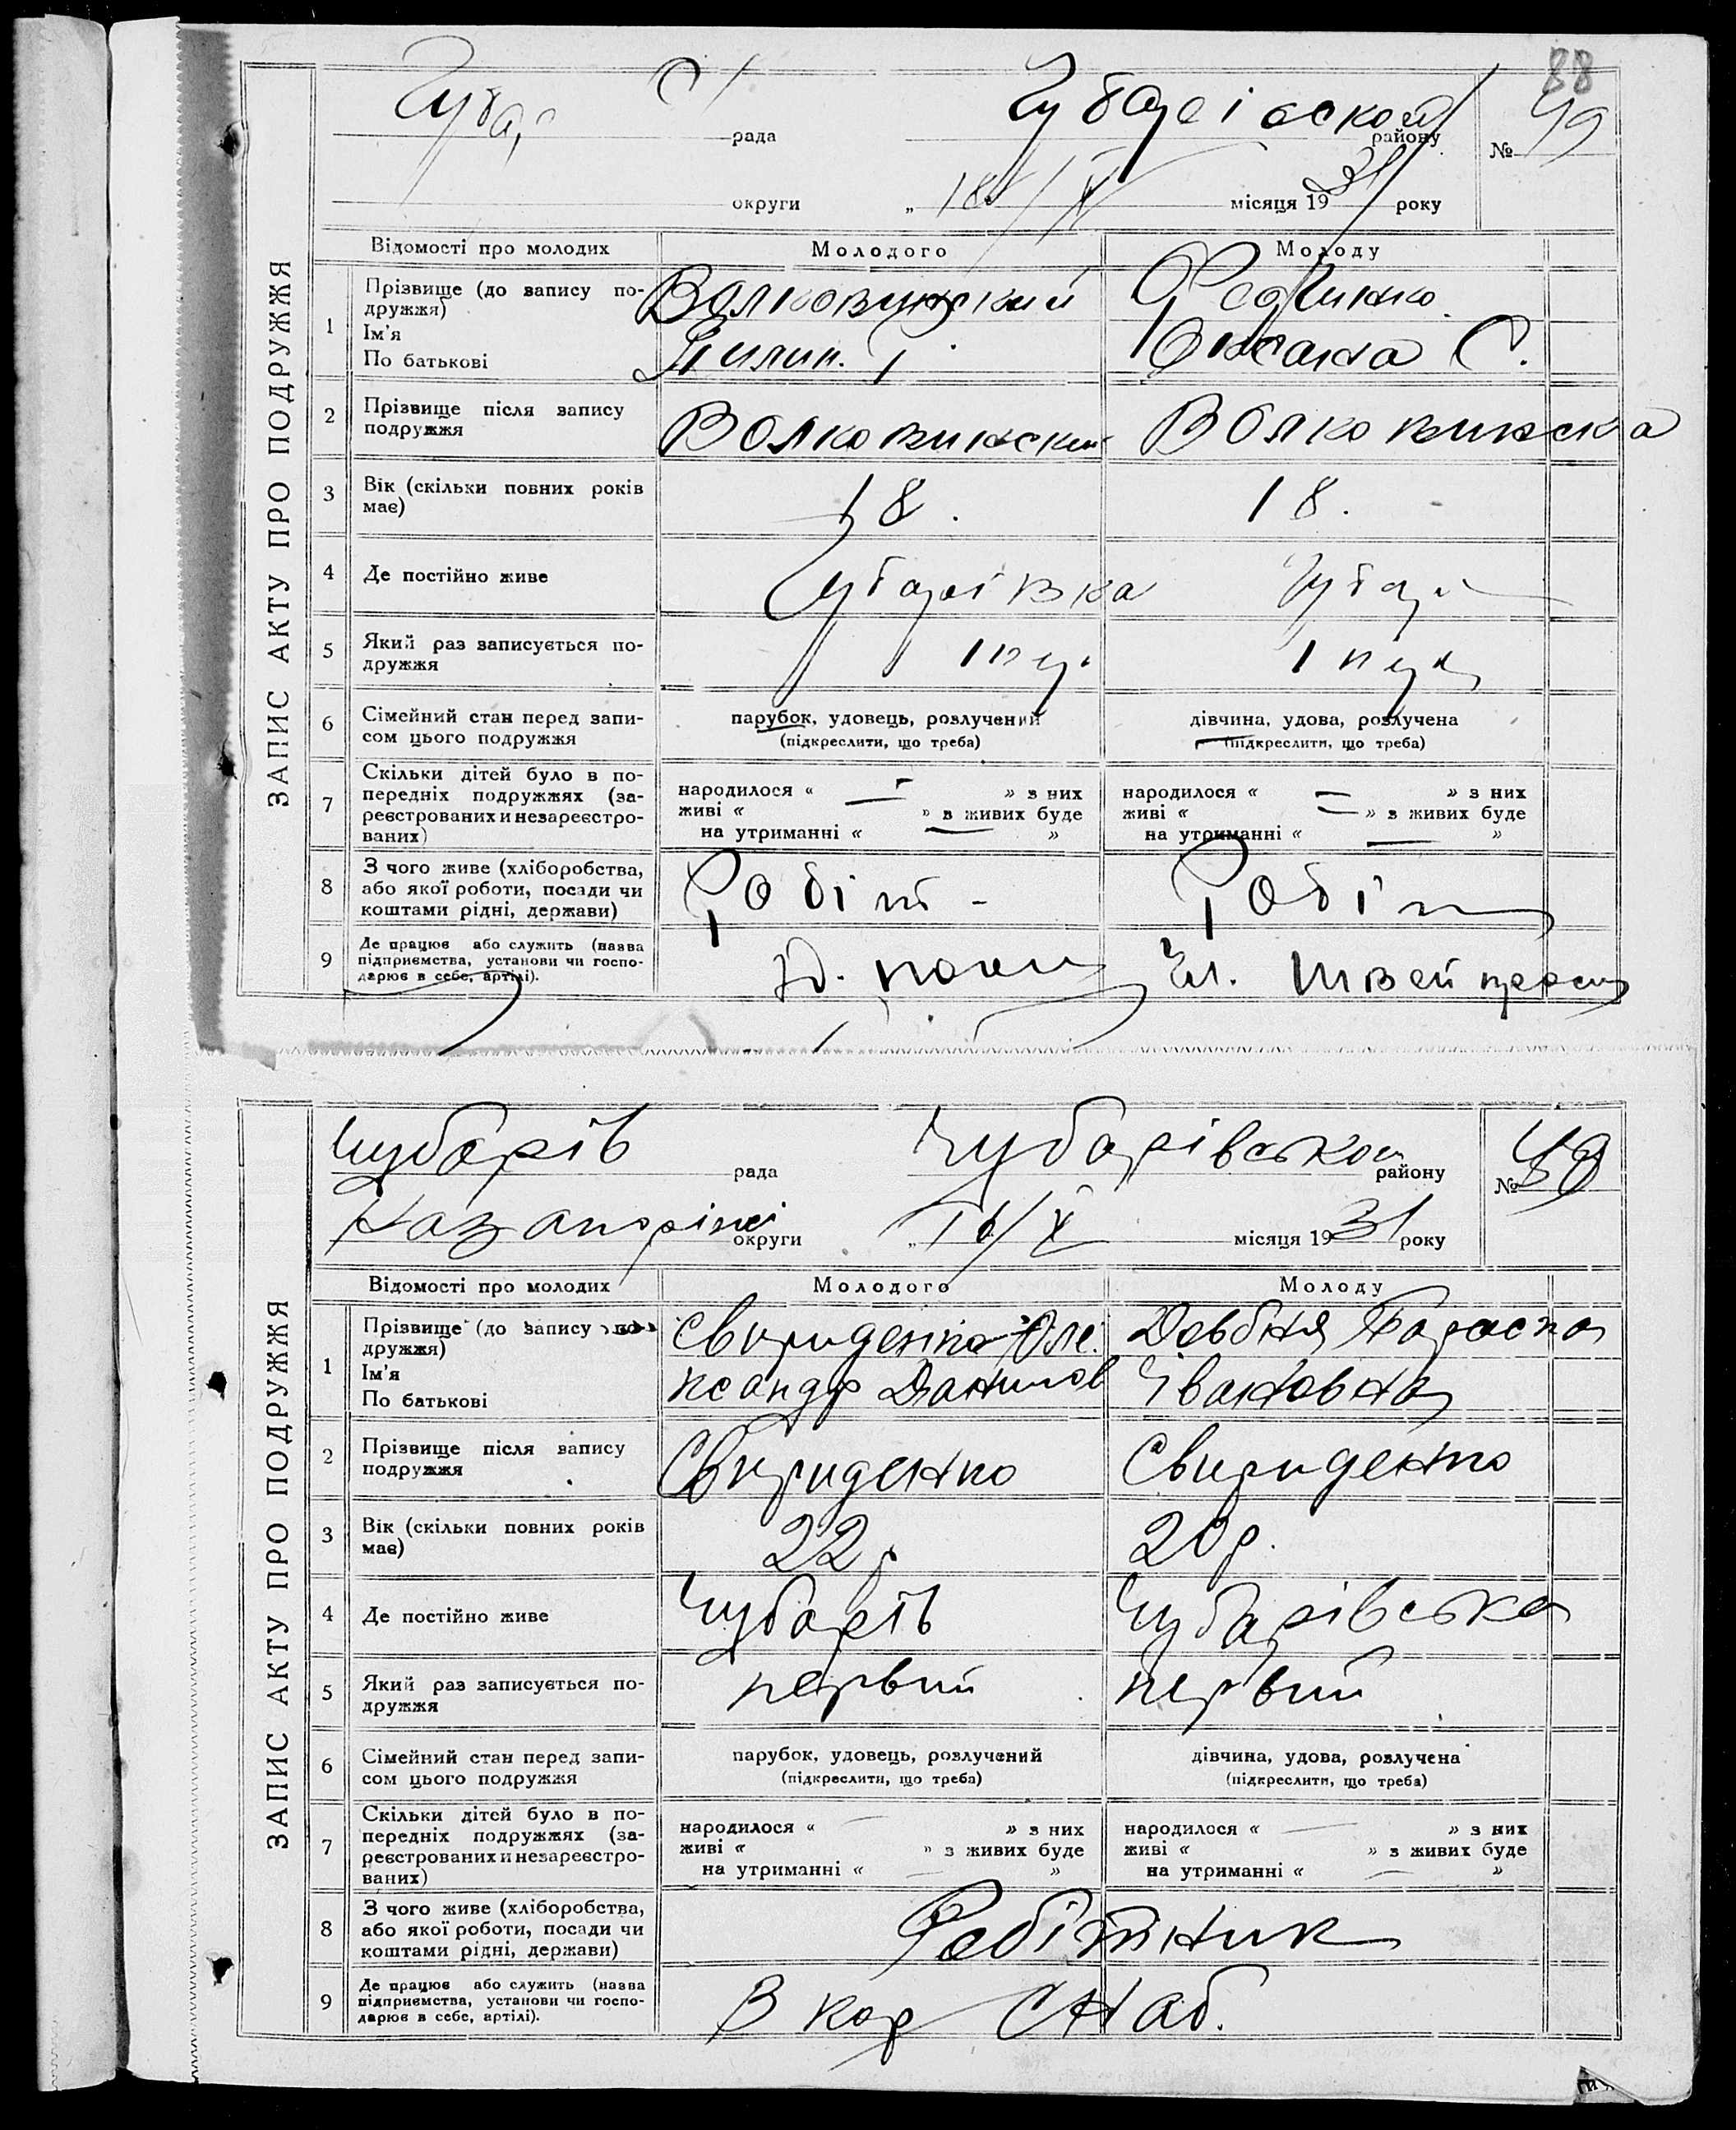 88
Чубар С/
рада
Чубарівської
району
№ 49
округи
„ 18/X місяця 1931 року
ЗАПИС АКТУ ПРО ПОДРУЖЖЯ
Відомості про молодих
Молодого
Молоду
1
Прізвище (до запису по-
дружжя)
Ім'я
По батькові
Волковинский
Федкинко
Оксана С.
2
Прізвище після запису
подружжя
Волковинский
Волковинска
3
Вік (скільки повних років
має)
18.
18.
4
Де постійно живе
Чубарівка
Чубар
5
Який раз записується по-
дружжя
1 пер
1 пер
6
Сімейний стан перед запи-
сом цього подружжя
парубок, удовець, розлучений
(підкреслити, що треба)
дівчина, удова, розлучена
(підкреслити, що треба)
7
Скільки дітей було в по-
передніх подружжях (за-
реєстрованих и незареєстро-
ваних)
народилося « — » з них
живі « » з живих буде
на утриманні « — »
народилося « — » з них
живі « — » з живих буде
на утриманні « — »
8
З чого живе (хліборобства,
або якої роботи, посади чи
коштами рідні, держави)
Робіт -
Робіт
9
Де працює або служить (назва
підприємства, установи чи госпо-
дарює в себе, артілі).
Швей
ЗАПИС АКТУ ПРО ПОДРУЖЖЯ
Чубарів
рада
Чубарівської
району
№ 48
округи
„ 16/X місяця 1931 року
Відомості про молодих
Молодого
Молоду
1
Прізвище (до запису по-
дружжя)
Ім'я
По батькові
Свириденко Оле-
ксандр Данилов
Довбня Параска
Івановна
2
Прізвище після запису
подружжя
Свириденко
Свириденко
3
Вік (скільки повних років
має)
22 р
20 р.
4
Де постійно живе
Чубарів
Чубарівська
5
Який раз записується по-
дружжя
первий
первий
6
Сімейний стан перед запи-
сом цього подружжя
парубок, удовець, розлучений
(підкреслити, що треба)
дівчина, удова, розлучена
(підкреслити, що треба)
7
Скільки дітей було в по-
передніх подружжях (за-
реєстрованих и незареєстро-
ваних)
народилося « — » з них
живі « » з живих буде
на утриманні « — »
народилося « — » з них
живі « » з живих буде
на утриманні « — »
8
З чого живе (хліборобства,
або якої роботи, посади чи
коштами рідні, держави)
Робітник
9
Де працює або служить (назва
підприємства, установи чи госпо-
дарює в себе, артілі).
В кор СНаб.